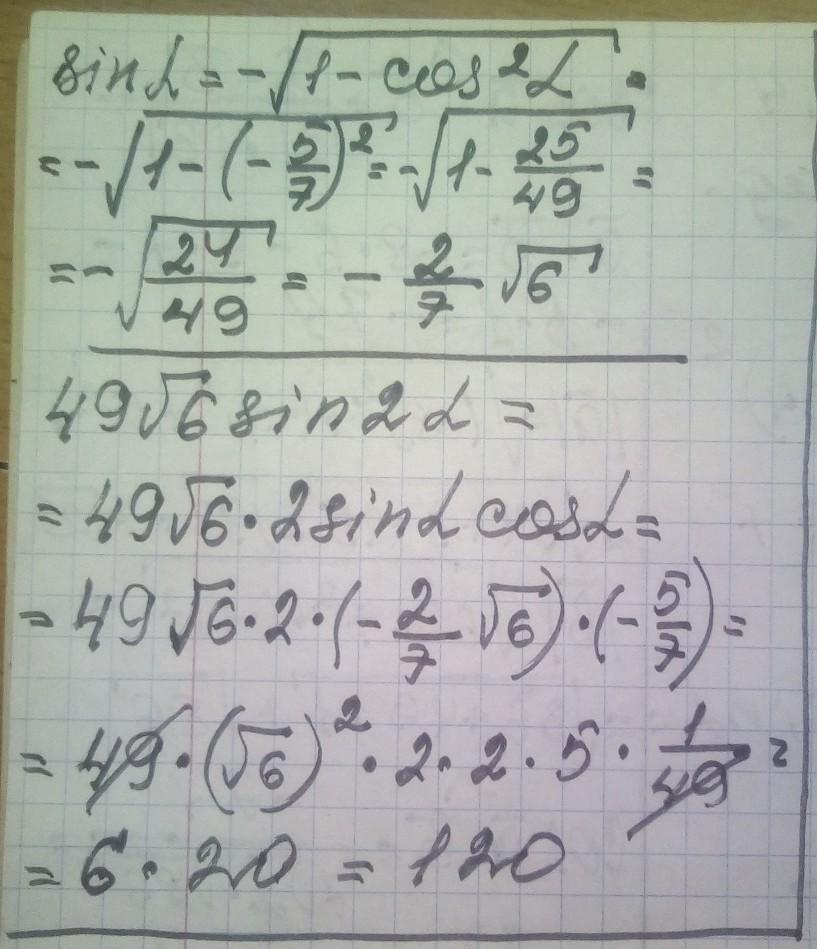 sin α = -√(1 - cos²α) =
= -√(1 - (-5/7)²) = -√(1 - 25/49) =
= -√(24/49) = - 2/7 √6
49√6 sin 2α =
= 49√6 · 2 sin α cos α =
= 49√6 · 2 · (- 2/7 √6) · (- 5/7) =
= 49 · (√6)² · 2 · 2 · 5 · 1/49 =
= 6 · 20 = 120